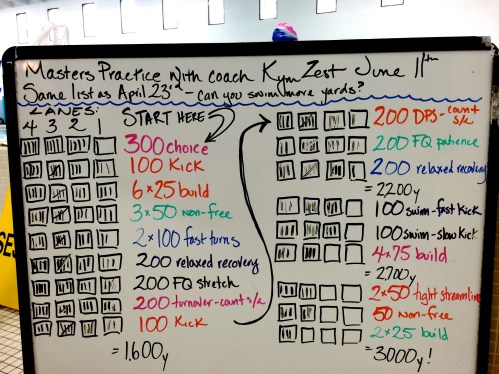 Masters Practice with coach Kym Zest June 11th
Same list as April 23rd - can you swim more yards?
LANES:
4 3 2 1
START HERE
300 choice
100 Kick
6x25 build
3x50 non-free
2x100 fast turns
200 relaxed recovery
200 FQ stretch
200 turnover-count s/c
100 Kick
= 1,600y
200 DPS - count s/c
200 FQ patience
200 relaxed recovery
= 2200y
100 swim-fast Kick
100 swim-slow Kick
4x75 build
= 2700y
2x50 tight streamline
50 non-free
2x25 build
= 3000y!